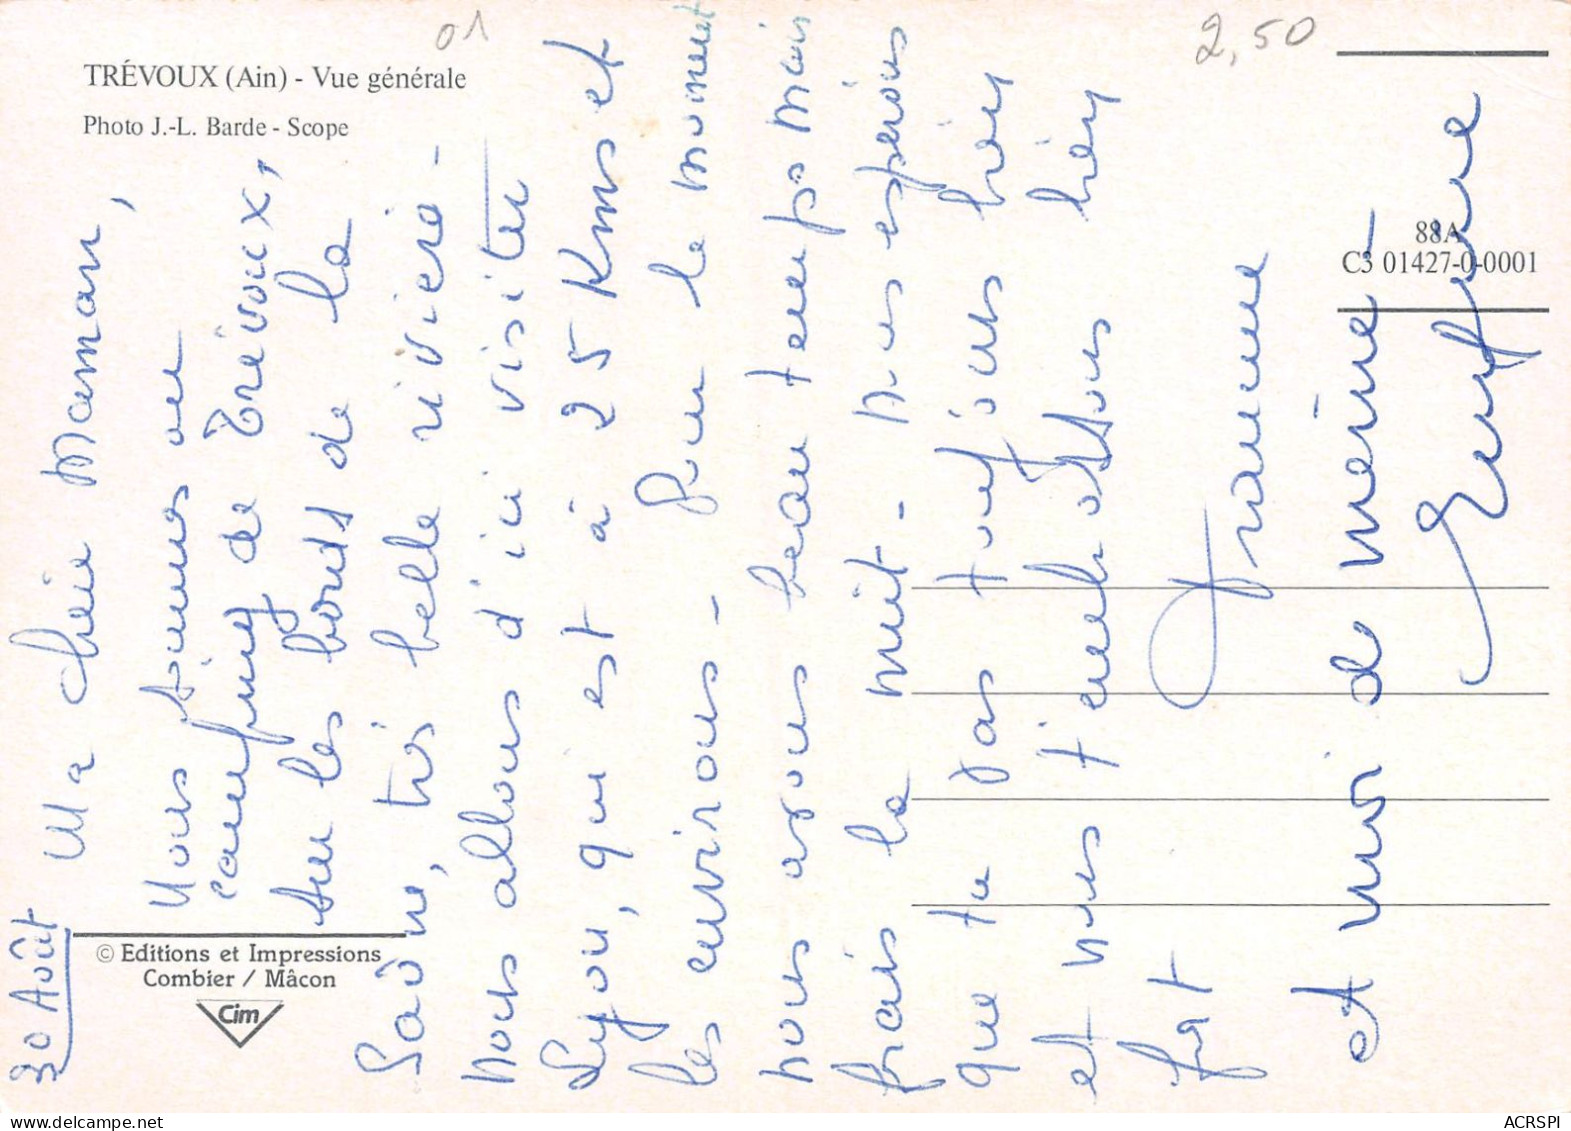 01
2,50
TRÉVOUX (Ain) - Vue générale
Photo J.-L. Barde - Scope
88A
C3 01427-0-0001
© Editions et Impressions
Combier / Mâcon
Cim
30 Août
Ma chère Maman,
Nous sommes au
camping de Trévoux,
sur les bords de la
Saône, très belle rivière -
Nous allons d'ici visiter
Lyon, qui est à 25 Kms et
les environs - Pour le moment
nous avons beau temps mais
frais la nuit - Nous espérons
que tu vas toujours bien
et nous t'embrassons bien
fort
et moi de même -
ACRSPI